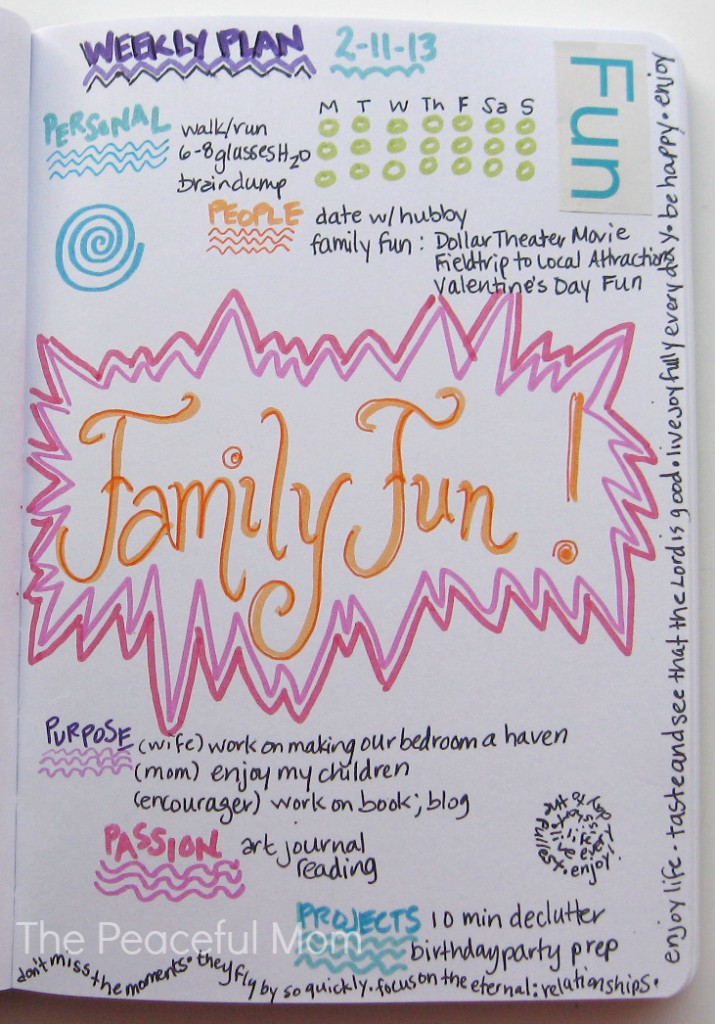 WEEKLY PLAN 2-11-13
Fun
M T W Th F Sa S
PERSONAL walk/run
6-8 glasses H2O
braindump
PEOPLE date w/hubby
family fun: Dollar Theater Movie
Fieldtrip to Local Attractions
Valentine's Day Fun
Family Fun!
PURPOSE (wife) work on making our bedroom a haven
(mom) enjoy my children
(encourager) work on book; blog
PASSION art journal
reading
PROJECTS 10 min declutter
birthday party prep
The Peaceful Mom
don't miss the moments • they fly by so quickly. focus on the eternal: relationships.
enjoy life • taste and see that the Lord is good • live joyfully every day • be happy • enjoy
live life every day to the fullest • enjoy!